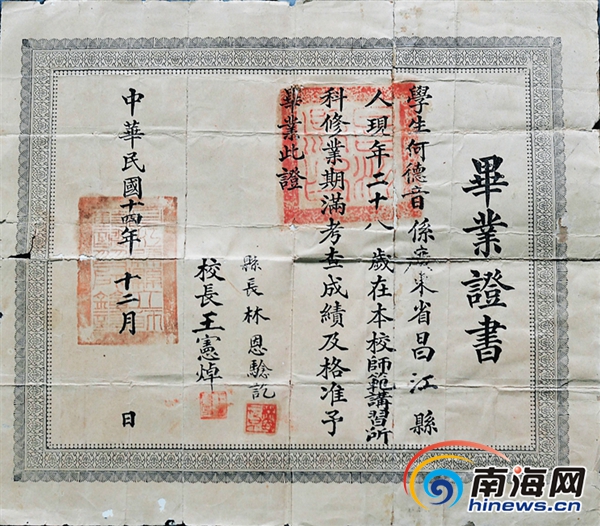 畢業證書
學生何德音係廣東省昌江縣
人現年二十八歲在本校師範講習所
科修業期滿考查成績及格准予
畢業此證
縣長林恩騐訖
校長王憲焯
中華民國十四年十二月 日
南海网
hinews.cn